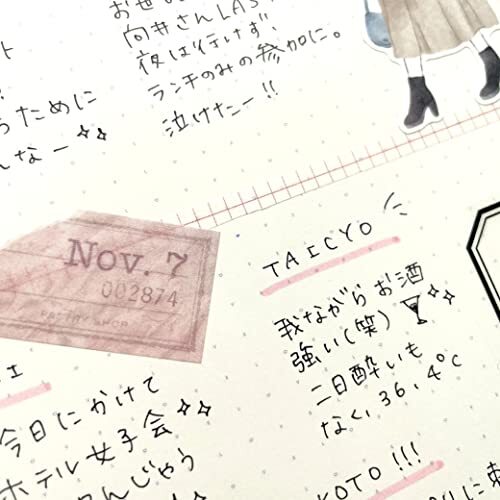 ト
ために
んなー
お世
向井さんLAS
夜は行けず、
ランチのみの参加に。
泣けたー!!
Nov. 7
002874
TAICYO
我ながらお酒
強い(笑)
二日酔いも
なく、36.4℃
今日にかけて
ホテル女子会
んじゃう
KOTO!!!